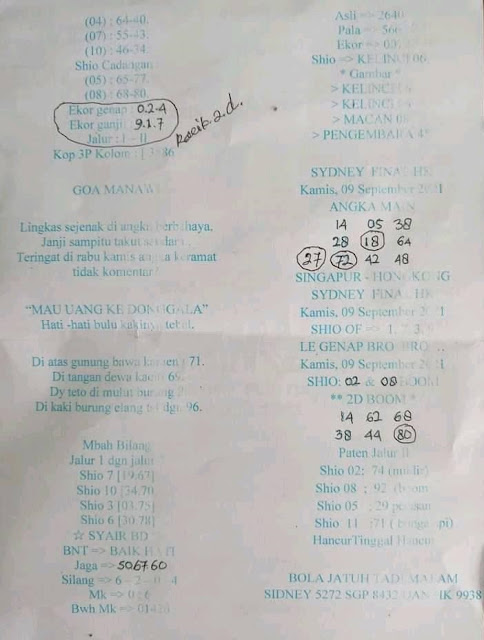 (04) : 64-40.
(07) : 55-43.
(10) : 46-34.
Shio Cadangan
(05) : 65-77.
(08) : 68-80.
Ekor genap : 0.2-4
Ekor ganjil : 9.1.7
Jalur : I - II
Kop 3P Kolom :
2.d.
GOA MANAWI
Lingkas sejenak di angka berbahaya,
Janji sampitu takut
Teringat di rabu kamis angka keramat
tidak komentar
"MAU UANG KE DONGGALA"
Hati -hati bulu kakinya tebal.
Di atas gunung bawa 71.
Di tangan dewa 69.
Dy teto di mulut burung
Di kaki burung elang dgn 96.
Mbah Bilang
Jalur 1 dgn jalur
Shio 7 [19.67]
Shio 10 [34.70
Shio 3 [03.75]
Shio 6 [30.78]
☆ SYAIR BD
BNT => BAIK HATI
Jaga => 506760
Silang => 6 - 2 - 0 4
Mk => 0 : 6
Bwh Mk =>
Asli => 2640
Pala =>
Ekor =>
Shio => KELINCI 06
* Gambar *
> KELINCI
> KELINCI
> MACAN
> PENGEMBARA
SYDNEY FINAL HK
Kamis, 09 September 2021
ANGKA MAIN
14 05 38
28 18 64
27 72 42 48
SINGAPUR - HONGKONG
SYDNEY FINAL HK
Kamis, 09 September 2021
SHIO OF =>
LE GENAP BRO BRO
Kamis, 09 September 2021
SHIO: 02 & 08 BOOM
** 2D BOOM *
14 62 68
38 44 80
Paten Jalur II
Shio 02: 74
Shio 08 : 92
Shio 05 : 29
Shio 11 :71
HancurTinggal Hancur
BOLA JATUH TADI MALAM
SIDNEY 5272 SGP 8432 DAN HK 9938